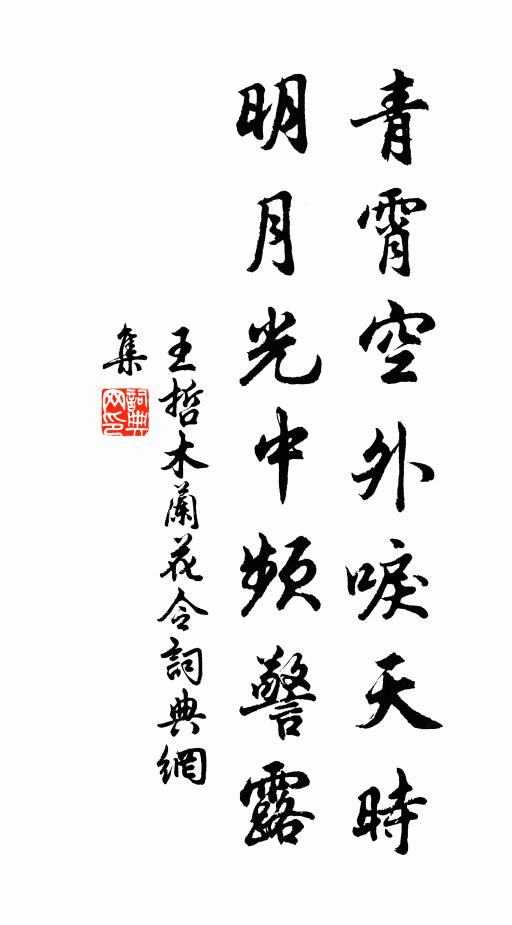 青霄空外唳天時
明月光中頻警露
王哲木蘭花令詞典網
集
詞典網印